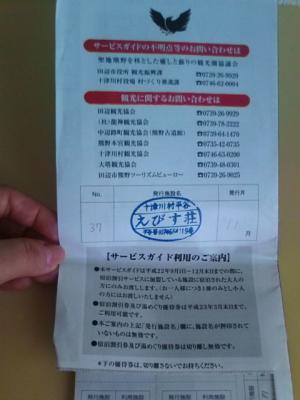 サービスガイドの不明点等のお問い合わせは
聖地熊野を核とした癒しと蘇りの観光圏協議会
田辺市役所 観光振興課 ☎0739-26-9929
十津川村役場 村づくり推進課 ☎0746-62-0004
観光に関するお問い合わせは
田辺観光協会 ☎0739-26-9929
(社)龍神観光協会 ☎0739-78-2222
中辺路町観光協会(熊野古道館) ☎0739-64-1470
熊野本宮観光協会 ☎0735-42-0735
十津川村観光協会 ☎0746-63-0200
大塔観光協会 ☎0739-48-0301
田辺市熊野ツーリズムビューロー ☎0739-26-9025
No. 発行施設名 発行月
十津川村平谷
えびす荘
37
11月
【サービスガイド利用のご案内】
●本サービスガイドは平成22年9月1日~12月末日までの間に、
宿泊割引サービスガイドに加盟している施設に宿泊された大人
の方にのみお渡しします。(お一人様につき1冊のみとし小人
の方にはお渡しいたしません)
●宿泊割引券及び湯めぐり優待券は平成23年3月末日まで、
ご利用可能です。
●本ご案内の上記「発行施設名」欄に、施設名が押印されて
いないものは無効です。
●宿泊割引券及び湯めぐり優待券は切り離し無効です。
*下の優待券は、切り離さないでお持ちください。
発行施設 利用施設 発行施設 利用施設